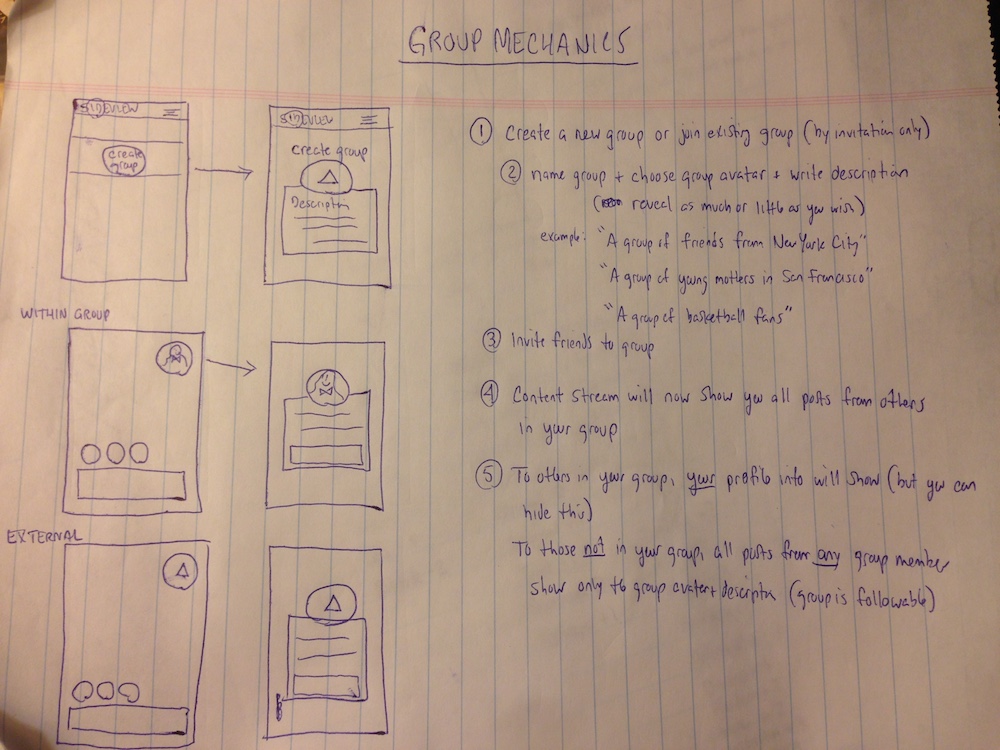 GROUP MECHANICS
SIDEVIEW
Create group
SIDEVIEW
Create group
Description
WITHIN GROUP
EXTERNAL
① Create a new group or join existing group (by invitation only)
② name group + choose group avatar + write description
( reveal as much or little as you wish)
example: "A group of friends from New York City"
"A group of young mothers in San Francisco"
"A group of basketball fans"
③ Invite friends to group
④ Content Stream will now show you all posts from others
in your group
⑤ To others in your group, your profile info will show (but you can
hide this)
To those not in your group, all posts from any group member
show only to group avatar + descriptn (group is followable)